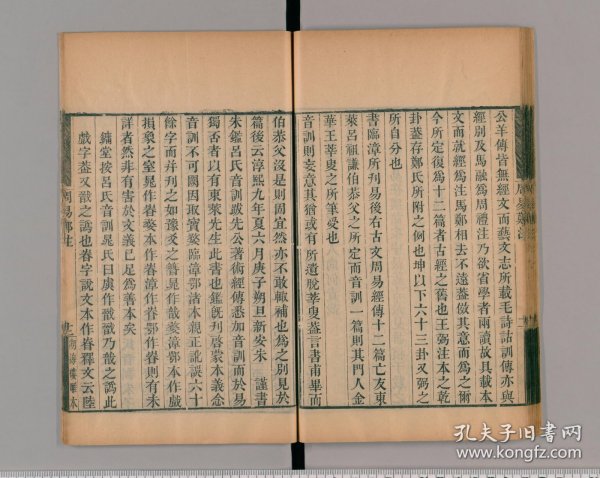 公羊傳皆無經文而藝文志所載毛詩詁訓傳亦與
經別及馬融爲周禮注乃欲省學者兩讀故具載本
文而就經爲注馬鄭相去不遠蓋倣其意而爲之爾
今所定復爲十二篇者古經之舊也王弼注本之乾
卦蓋存鄭氏所附之例也坤以下六十三卦又弼之
所自分也
書臨漳所刋易後右古文周易經傳十二篇亡友東
萊呂祖謙伯恭父之所定而音訓一篇則其門人金
華王莘叟之所筆受也
音訓則妄意其猶或有所遺脫莘叟蓋言書甫畢而
伯恭父沒是則固宜然亦不敢輒補也爲之別見於
篇後云淳熙九年夏六月庚子朔旦新安朱 謹書
朱鑑呂氏音訓跋先公著述經傳悉加音訓而於易
獨否者以有東萊先生此書也鑑旣刋啓蒙本義念
音訓不可闕因取寶婺臨漳鄂渚本親正訛誤六十
餘字而并刋之如豫爻之簪晁作戠婺漳鄂本作戲
損象之窒晁作㫪婺本作㫪漳作㫪鄂作㫪則有未
詳者然非有害於文義已足爲善本矣
鏞堂按呂氏音訓晁氏曰虞作戠戠乃戠之譌此
戲字蓋又戠之譌也㫪字說文本作㫪釋文云陸
周易鄭注
孔夫子旧书网
www.kongfz.com